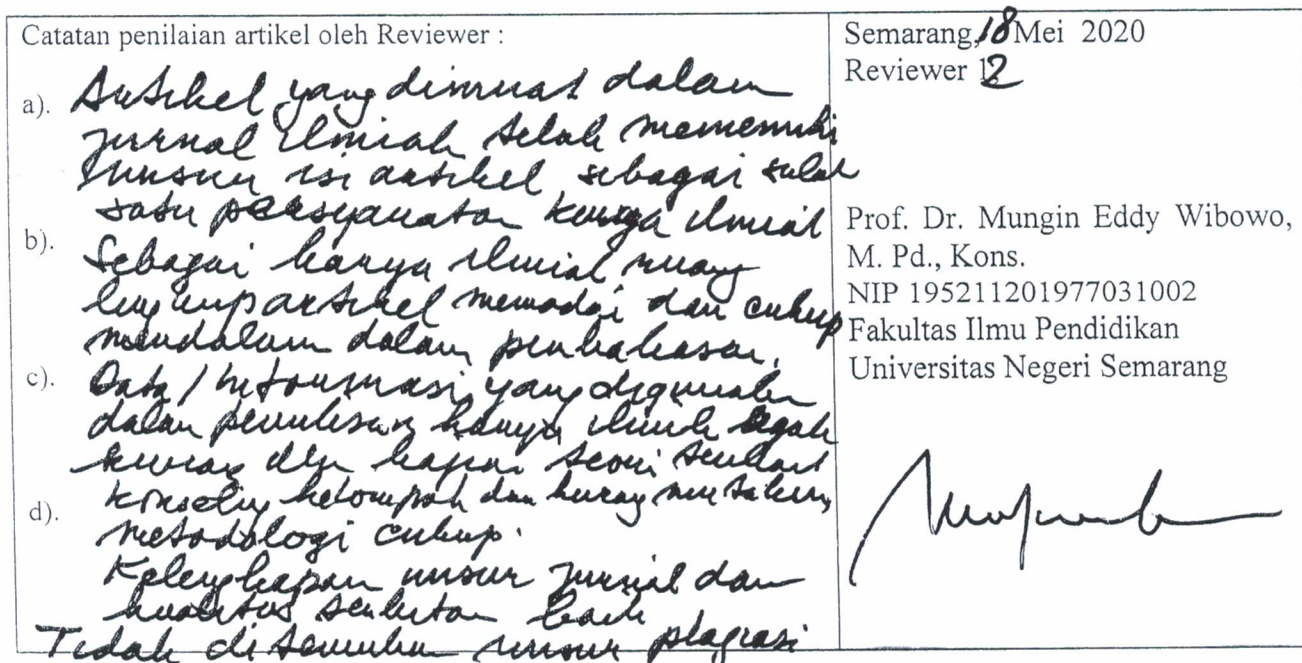 Catatan penilaian artikel oleh Reviewer :
a). Artikel yang dimuat dalam
jurnal ilmiah telah memenuhi
unsur isi artikel sebagai salah
satu persyaratan karya ilmiah
b). Sebagai karya ilmiah ruang
lingkup artikel memadai dan cukup
mendalam dalam pembahasan.
c). Data / informasi yang digunakan
dalam penulisan karya ilmiah agak
kurang dlm kajian teori tentang
konseling kelompok dan kurang
d). metodologi cukup.
Kelengkapan unsur jurnal dan
kualitas terbitan baik
Tidak ditemukan unsur plagiasi
Semarang, 18 Mei 2020
Reviewer 2
Prof. Dr. Mungin Eddy Wibowo,
M. Pd., Kons.
NIP 195211201977031002
Fakultas Ilmu Pendidikan
Universitas Negeri Semarang